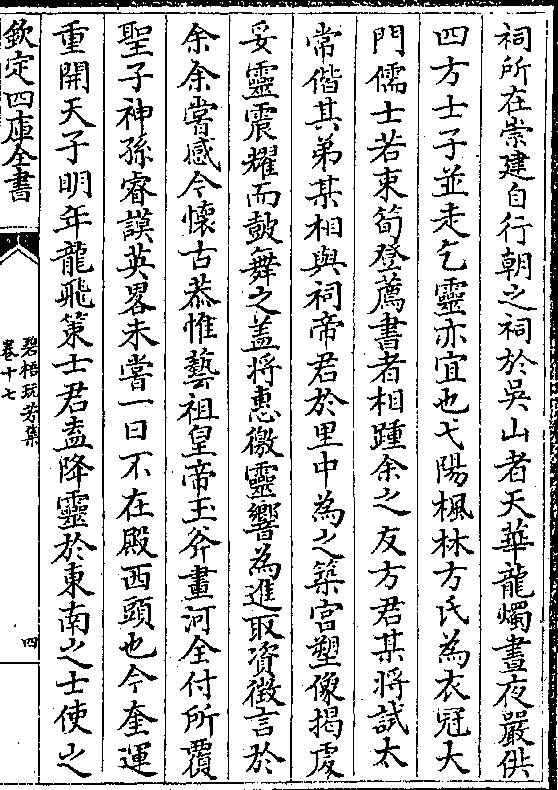 祠所在崇建自行朝之祠於吳山者天華龍燭晝夜嚴供
四方士子並走乞靈亦宜也弋陽楓林方氏為衣冠大
門儒士若束筍登薦書者相踵余之友方君某將試太
常偕其弟某相與祠帝君於里中為之築宫塑像揭䖍
妥靈震耀而鼓舞之蓋將惠徼靈響為進取資徴言於
余余嘗感今懷古恭惟藝祖皇帝玉斧畫河全付所覆
聖子神孫睿謨英畧未嘗一日不在殿西頭也今奎運
重開天子明年龍飛策士君盍降靈於東南之士使之
欽定四庫全書
碧梧玩芳集
卷十七
四